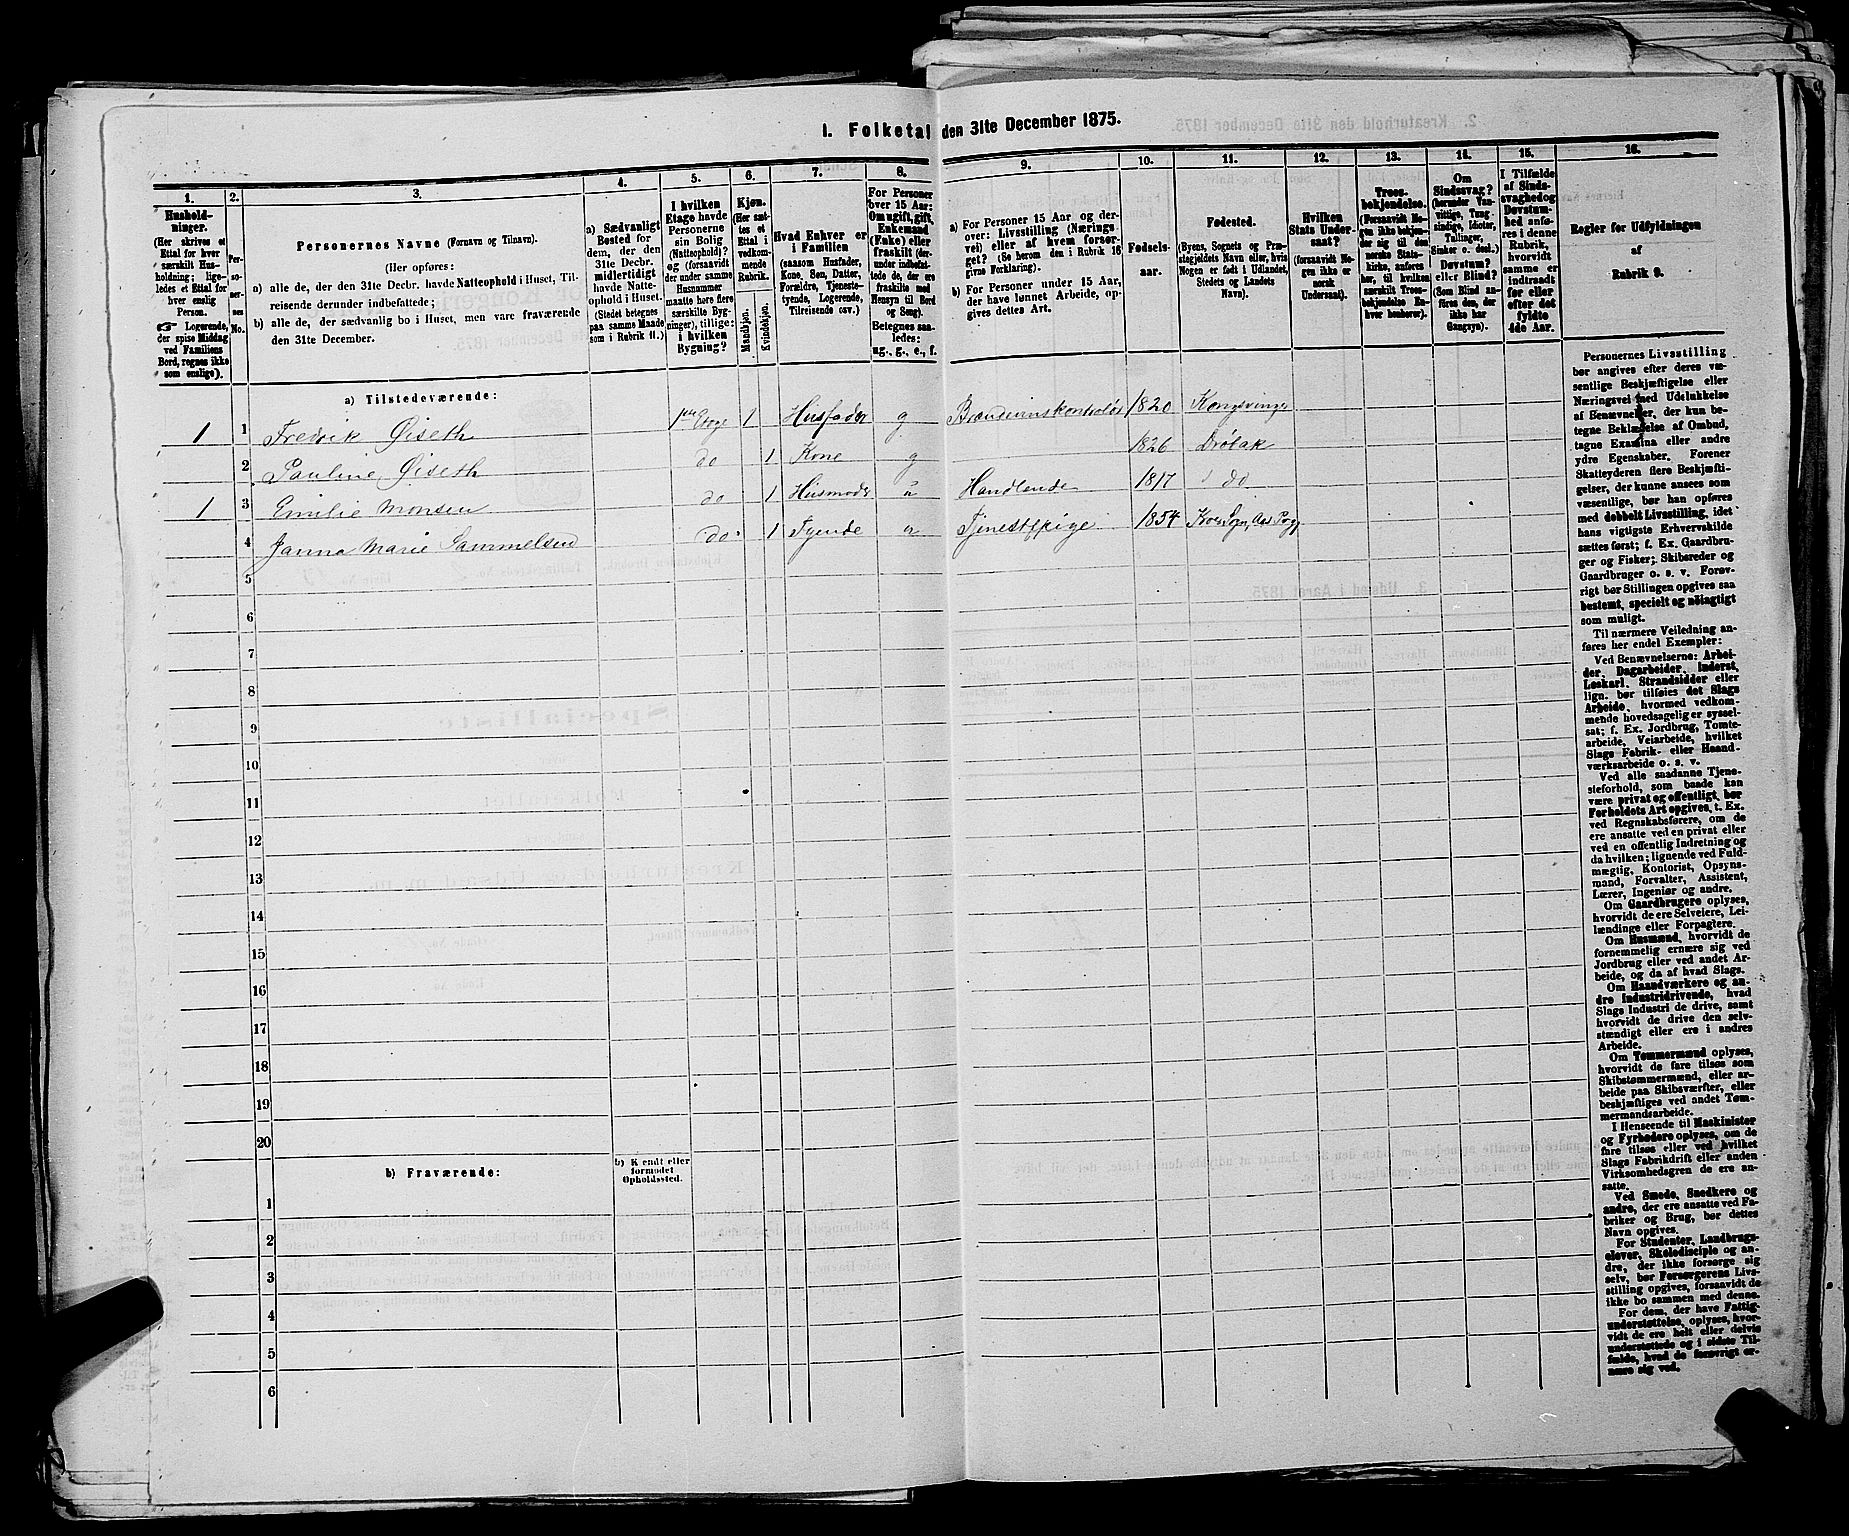 1. Folketal den 31te December 1875.
1. 2. 3. 4. 5. 6. 7. 8. 9. 10. 11. 12. 13. 14. 15. 16.
Hushold-
ninger.
(Her skrives et
Ettal for hver
særskilt Hus-
holdning; lige-
ledes et Ettal for
hver enslig
Person.
☞ Logerende,
der spise Middag
ved Familiens
Bord, regnes ikke
som enslige).
Per-
so-
ner-
nes
No.
Personernes Navne (Fornavn og Tilnavn).
(Her opføres:
a) alle de, der den 31te Decbr. havde Natteophold i Huset, Til-
reisende derunder indbefattede;
b) alle de, der sædvanlig bo i Huset, men vare fraværende
den 31te December.
a) Sædvanligt
Bosted for
dem, der den
31te Decbr.
midlertidigt
havde Natte-
ophold i Huset.
(Stedet betegnes
paa samme Maade
som i Rubrik 11.)
I hvilken
Etage havde
Personerne
sin Bolig
(Natteophold)?
og (forsaavidt
der under samme
Husnummer
maatte høre flere
særskilte Byg-
ninger), tillige:
i hvilken
Bygning?
Kjøn.
(Her sæt-
tes et
Ettal i
vedkom-
mende
Rubrik.
Mandkjøn.
Kvindekjøn.
Hvad Enhver er
i Familien
(saasom Husfader,
Kone, Søn, Datter,
Forældre, Tjeneste-
tyende, Logerende,
Tilreisende osv.)
For Personer
over 15 Aar:
Om ugift, gift,
Enkemand
(Enke) eller
fraskilt (der-
under indbefat-
tede de, der ere
fraskilte med
Hensyn til Bord
og Seng).
Betegnes saa-
ledes:
ug., g., e., f.
a) For Personer 15 Aar og der-
over: Livsstilling (Nærings-
vei) eller af hvem forsør-
get? (Se herom den i Rubrik 16
givne Forklaring).
b) For Personer under 15 Aar,
der have lønnet Arbeide, op-
gives dettes Art.
Fødsels-
aar.
Fødested.
(Byens, Sognets og Præ-
stegjeldets Navn eller, hvis
Nogen er født i Udlandet,
Stedets og Landets
Navn).
Hvilken
Stats Under-
saat?
(forsaavidt No-
gen ikke er
norsk
Undersaat).
Troes-
bekjendelse.
(Forsaavidt No-
gen ikke bekjen-
der sig til den
norske Stats-
kirke, anføres
her, til hvilken
særskilt Troes-
bekjendelse En-
hver henhører).
Om
Sindssvag?
(herunder Van-
vittige, Tung-
sindige, Idioter,
Tullinger,
Sinker o. desl.)
Døvstum?
eller Blind?
(Som Blind an-
føres den, der
ikke har
Gangsyn).
I Tilfælde
af Sinds-
svaghed og
Døvstum-
hed anfø-
res i denne
Rubrik,
hvorvidt
samme er
indtraadt
før eller
efter det
fyldte
4de Aar.
Regler for Udfyldningen
af
Rubrik 9.
a) Tilstedeværende:
1 1 Fredrik Øiseth 1ste Etage 1 Husfader g Brændevinskontrolør 1820 Kongsvinger
2 Pauline Øiseth do 1 Kone g 1826 Drøbak
1 3 Emilie Monsen do 1 Husmoder u Handlende 1817 do
4 Janna Marie Sammelsen do 1 Tyende u Tjenestepige 1854 Kroer Sogn, Aas Prgj.
5
6
7
8
9
10
11
12
13
14
15
16
17
18
19
20
b) Fraværende:
b) Kjendt eller
formodet
Opholdssted.
1
2
3
4
5
6
Personernes Livsstilling
bør angives efter deres væ-
sentlige Beskjæftigelse eller
Næringsvei med Udelukkelse
af Benævnelser, der kun be-
tegne Beklædelse af Ombud,
tagne Examina eller andre
ydre Egenskaber. Forener
Skatteyderen flere Beskjæfti-
gelser, der kunne ansees som
væsentlige, bør han opføres
med dobbelt Livsstilling, idet
hans vigtigste Erhvervskilde
sættes først; f. Ex. Gaardbru-
ger og Fisker; Skibsreder og
Gaardbruger o. s. v. Forøv-
rigt bør Stillingen opgives saa
bestemt, specielt og nøiagtigt
som muligt.
Til nærmere Veiledning an-
føres her endel Exempler:
Ved Benævnelserne: Arbei-
der, Dagarbeider, Inderst,
Løskarl, Strandsidder eller
lign. bør tilføies det Slags
Arbeide, hvormed vedkom-
mende hovedsagelig er syssel-
sat; f. Ex. Jordbrug, Tomte-
arbeide, Veiarbeide, hvilket
Slags Fabrik- eller Haand-
værksarbeide o. s. v.
Ved alle saadanne Tjene-
steforhold, som baade kan
være privat og offentligt, bør
Forholdets Art opgives, t. Ex.
ved Regnskabsførere, om de
ere ansatte ved en privat eller
ved en offentlig Indretning og
da hvilken; lignende ved Fuld-
mægtig, Kontorist, Opsyns-
mand, Forvalter, Assistent,
Lærer, Ingeniør og andre.
Om Gaardbrugere oplyses,
hvorvidt de ere Selveiere, Lei-
lændinge eller Forpagtere.
Om Husmænd, hvorvidt de
fornemmelig ernære sig ved
Jordbrug eller ved andet Ar-
beide, og da af hvad Slags.
Om Haandværkere og an-
dre Industridrivende, hvad
Slags Industri de drive, samt
hvorvidt de drive den selv-
stændigt eller ere i andres
Arbeide.
Om Tømmermænd oplyses,
hvorvidt de fare tilsøs som
Skibstømmermænd, eller ar-
beide paa Skibsværfter, eller
beskjæftiges ved andet Tøm-
mermandsarbeide.
I Henseende til Maskinister
og Fyrbødere oplyses, om de
fare tilsøs eller ved hvilket
Slags Fabrikdrift eller anden
Virksomhedsgren de ere an-
satte.
Ved Smede, Snedkere og
andre, der ere ansatte ved Fa-
briker og Brug, bør dettes
Navn opgives.
For Studenter, Landbrugs-
elever, Skoledisciple og an-
dre, der ikke forsørge sig
selv, bør Forsørgerens Livs-
stilling opgives, forsaavidt de
ikke bo sammen med denne.
For dem, der have Fattig-
understøttelse, oplyses, hvor-
vidt de ere helt eller delvis
understøttede og i sidste Til-
fælde, hvad de forøvrigt er-
nære sig ved.